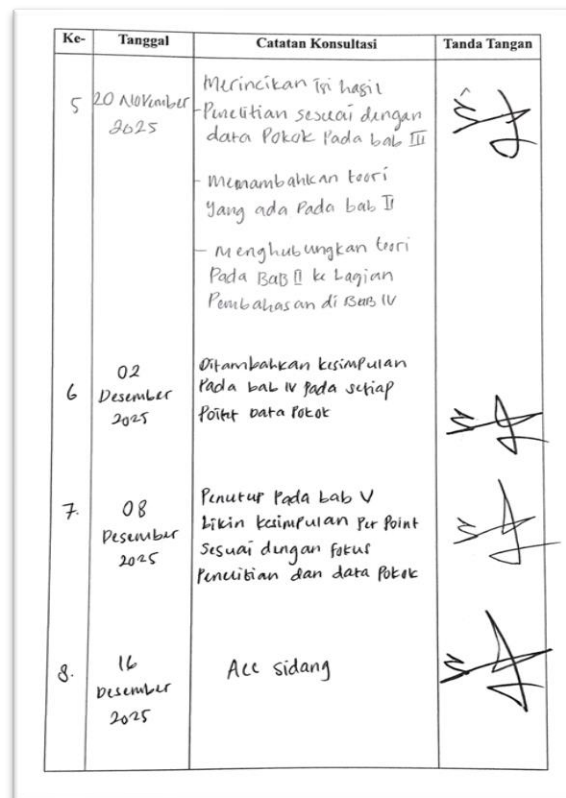 Ke- Tanggal Catatan Konsultasi Tanda Tangan
5 20 November 2025
Merincikan isi hasil
- Penelitian sesuai dengan
data Pokok Pada bab III
- Menambahkan teori
yang ada Pada bab II
- Menghubungkan teori
Pada BaB II ke bagian
Pembahasan di BAB IV
6 02 Desember 2025
Ditambahkan kesimpulan
Pada bab IV Pada setiap
Point Data Pokok
7. 08 Desember 2025
Penutup Pada bab V
bikin kesimpulan Per Point
Sesuai dengan fokus
Penelitian dan data Pokok
8. 16 Desember 2025
Acc sidang